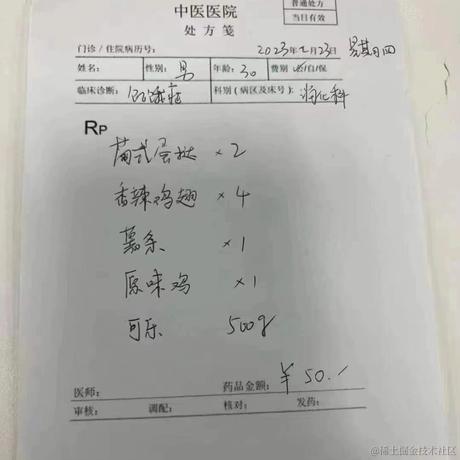 普通处方
当日有效
中医医院
处方笺
门诊/住院病历号: 2023年2月23日 星期四
姓名: 性别: 男 年龄: 30 费别: 医/自/保
临床诊断: 饥饿症 科别(病区及床号): 消化科
RP
葡式蛋挞 ×2
香辣鸡翅 ×4
薯条 ×1
原味鸡 ×1
可乐 500g
医师: 药品金额: ¥50.
审核: 调配: 核对: 发药:
@稀土掘金技术社区